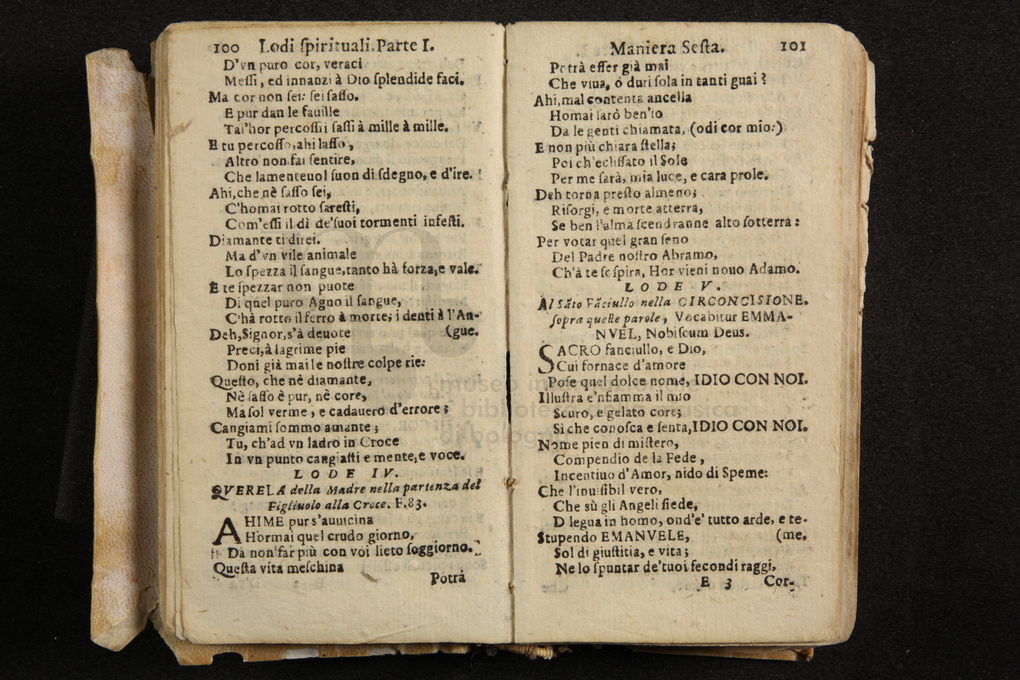 100 Lodi ſpirituali. Parte I.
D'vn puro cor, veraci
Meſſi, ed innanzi à Dio ſplendide faci.
Ma cor non ſei: ſei ſaſſo.
E pur dan le fauille
Tal'hor percoſſi i ſaſſi à mille à mille.
E tu percoſſo, ahi laſſo,
Altro non fai ſentire,
Che lamenteuol ſuon di ſdegno, e d'ire.
Ahi, che nè ſaſſo ſei,
C'homai rotto ſareſti,
Com'eſſi il dì de'ſuoi tormenti infeſti.
Diamante ti direi.
Ma d'vn vile animale
Lo ſpezza il ſangue, tanto hà forza, e vale.
E te ſpezzar non puote
Di quel puro Agno il ſangue,
C'hà rotto il ferro à morte; i denti à l'An-
Deh, Signor, s'à deuote (gue.
Preci, à lagrime pie
Doni già mai le noſtre colpe rie:
Queſto, che nè diamante,
Nè ſaſſo è pur, nè core,
Ma ſol verme, e cadauero d'errore;
Cangiami ſommo amante;
Tu, ch'ad vn ladro in Croce
In vn punto cangiaſti e mente, e voce.
LODE IV.
QVERELA della Madre nella partenza del
Figliuolo alla Croce. F. 83.
AHIME pur s'auuicina
Hormai quel crudo giorno,
Da non far più con voi lieto ſoggiorno.
Queſta vita meſchina
Potrà
Maniera Seſta. 101
Potrà eſſer già mai
Che viua, ò duri ſola in tanti guai?
Ahi, mal contenta ancella
Homai ſarò ben'io
Da le genti chiamata, (odi cor mio:)
E non più chiara ſtella;
Poi ch'ecliſſato il Sole
Per me ſarà, mia luce, e cara prole.
Deh torna preſto almeno;
Riſorgi, e morte atterra,
Se ben l'alma ſcendranne alto ſotterra:
Per votar quel gran ſeno
Del Padre noſtro Abramo,
Ch'à te ſoſpira, Hor vieni nouo Adamo.
LODE V.
Al Sāto Fāciullo nella CIRCONCISIONE.
ſopra queſte parole, Vocabitur EMMA-
NVEL, Nobiſcum Deus.
SACRO fanciullo, e Dio,
Cui fornace d'amore
Poſe quel dolce nome, IDIO CON NOI.
Illuſtra e'nfiamma il mio
Scuro, e gelato core;
Si che conoſca e ſenta, IDIO CON NOI.
Nome pien di miſtero,
Compendio de la Fede,
Incentiuo d'Amor, nido di Speme:
Che l'inuiſibil vero,
Che sù gli Angeli ſiede,
D legua in homo, ond'e' tutto arde, e te-
Stupendo EMANVELE, (me.
Sol di giuſtitia, e vita;
Ne lo ſpuntar de'tuoi fecondi raggi,
E 3 Cor-